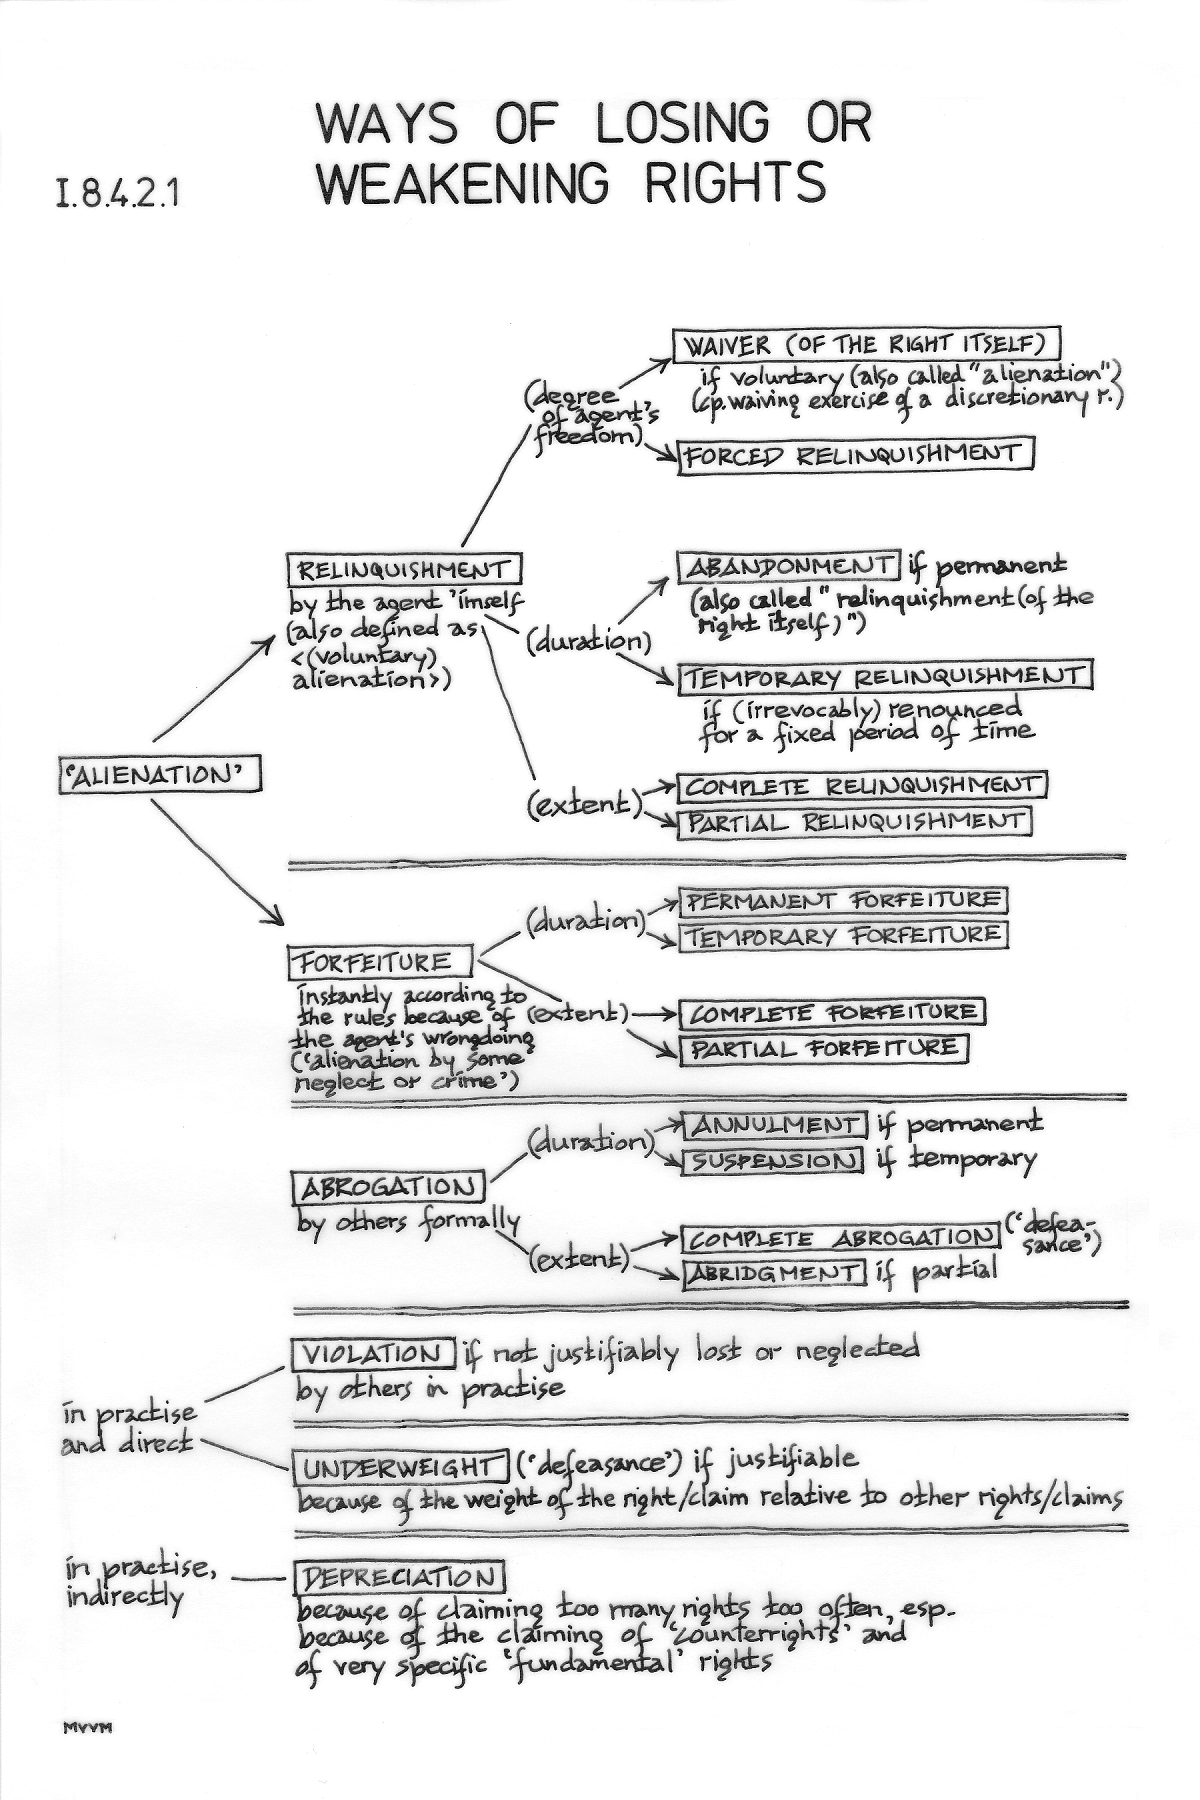 WAYS OF LOSING OR
WEAKENING RIGHTS
I.8.4.2.1
WAIVER (OF THE RIGHT ITSELF)
if voluntary (also called "alienation")
(cp. waiving exercise of a discretionary r.)
(degree
of agent's
freedom)
FORCED RELINQUISHMENT
RELINQUISHMENT
by the agent 'imself
(also defined as
<(voluntary)
alienation>)
(duration)
ABANDONMENT if permanent
(also called "relinquishment (of the
right itself)")
TEMPORARY RELINQUISHMENT
if (irrevocably) renounced
for a fixed period of time
'ALIENATION'
(extent)
COMPLETE RELINQUISHMENT
PARTIAL RELINQUISHMENT
FORFEITURE
instantly according to
the rules because of
the agent's wrongdoing
('alienation by some
neglect or crime')
(duration)
PERMANENT FORFEITURE
TEMPORARY FORFEITURE
(extent)
COMPLETE FORFEITURE
PARTIAL FORFEITURE
ABROGATION
by others formally
(duration)
ANNULMENT if permanent
SUSPENSION if temporary
(extent)
COMPLETE ABROGATION ('defea-
sance')
ABRIDGMENT if partial
in practise
and direct
VIOLATION if not justifiably lost or neglected
by others in practise
UNDERWEIGHT ('defeasance') if justifiable
because of the weight of the right/claim relative to other rights/claims
in practise,
indirectly
DEPRECIATION
because of claiming too many rights too often, esp.
because of the claiming of 'counterrights' and
of very specific 'fundamental' rights
MVVM